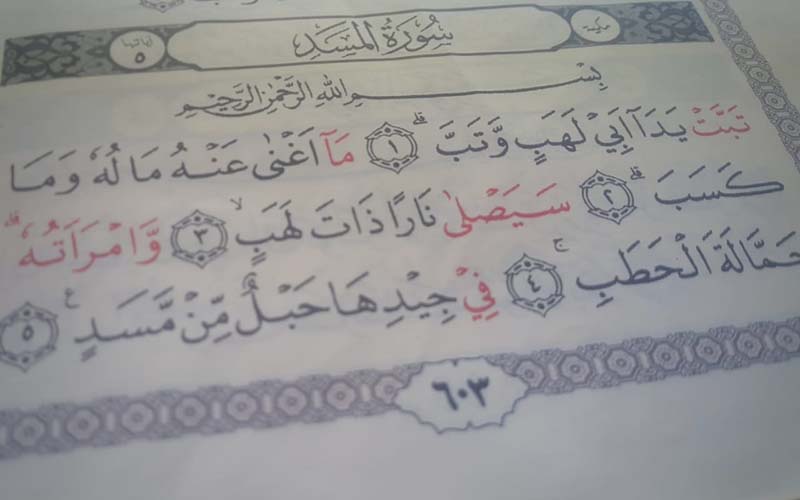 مكية
سُورَةُ الْمَسَدِ
اٰيَاتُهَا ٥
بِسْمِ اللهِ الرَّحْمٰنِ الرَّحِيْمِ
تَبَّتْ يَدَآ اَبِيْ لَهَبٍ وَّتَبَّ ۗ ١ مَآ اَغْنٰى عَنْهُ مَالُهٗ وَمَا
كَسَبَ ۗ ٢ سَيَصْلٰى نَارًا ذَاتَ لَهَبٍ ۙ ٣ وَّامْرَاَتُهٗ ۗ
حَمَّالَةَ الْحَطَبِ ۚ ٤ فِيْ جِيْدِهَا حَبْلٌ مِّنْ مَّسَدٍ ࣖ ٥
٦٠٣